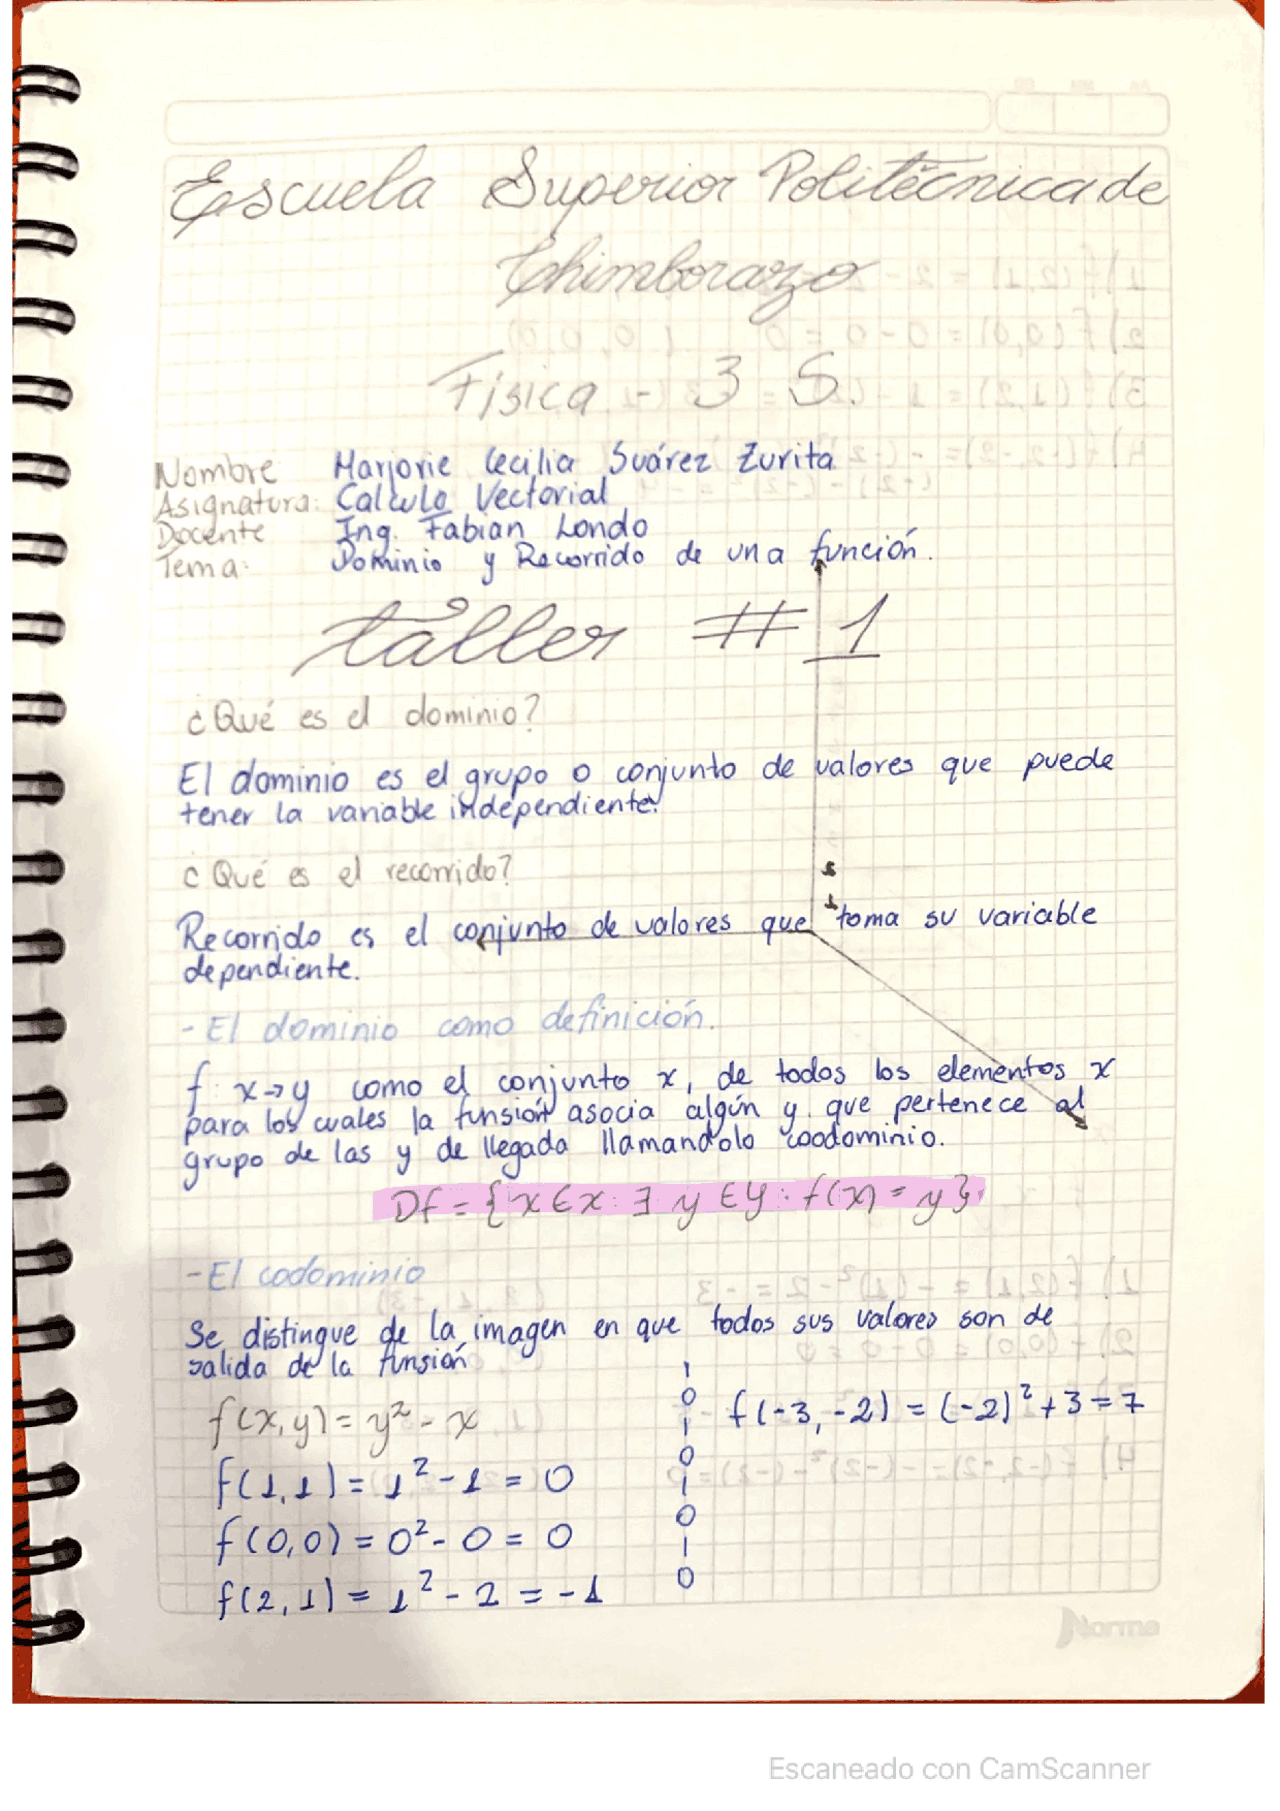 Escuela Superior Politécnica de
Chimborazo
Física - 3 S.
Nombre Marjorie Cecilia Suárez Zurita
Asignatura: Calculo Vectorial
Docente Ing. Fabian Londo
Tema: Dominio y Recorrido de una función.
taller # 1
¿Qué es el dominio?
El dominio es el grupo o conjunto de valores que puede
tener la variable independiente.
¿Qué es el recorrido?
Recorrido es el conjunto de valores que toma su variable
dependiente.
- El dominio como definición.
f: x→y como el conjunto x, de todos los elementos x
para los cuales la funsión asocia algún y que pertenece al
grupo de las y de llegada llamandolo coodominio.
Df = {x ∈ x : ∃ y ∈ y : f(x) = y}.
- El codominio
Se distingue de la imagen en que todos sus valores son de
salida de la funsión
f(x,y) = y² - x
f(1,1) = 1² - 1 = 0
f(0,0) = 0² - 0 = 0
f(2,1) = 1² - 2 = -1
f(-3,-2) = (-2)² + 3 = 7
Norma
Escaneado con CamScanner